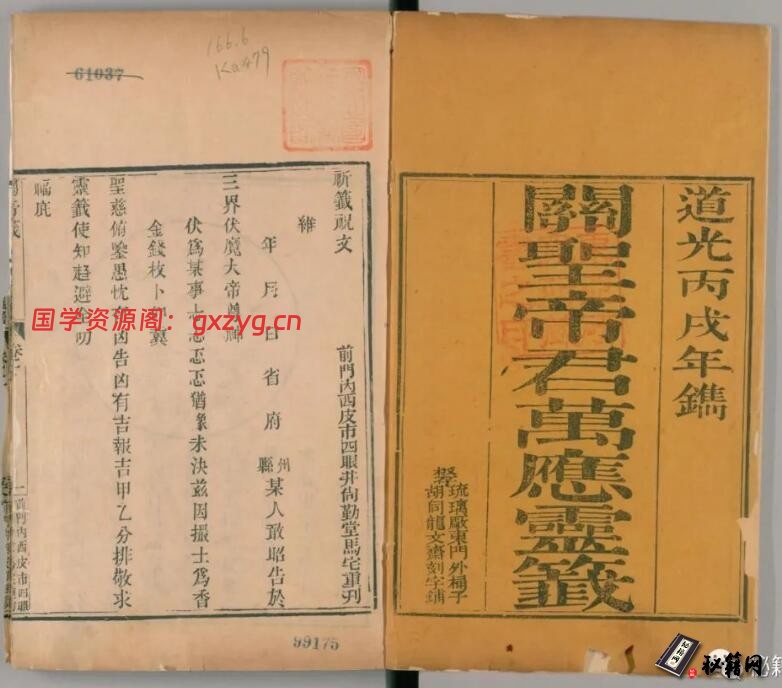 道光丙戌年鐫
關聖帝君萬應靈籤
琉璃厰東門外桶子
胡同龍文齋刻字鋪
166.6
Ka479
61037
祈籤祝文
前門內西皮市四眼井尙勤堂馬宅重刊
維
年 月 日省府州縣某人敢昭告於
三界伏魔大帝
伏爲某事
猶豫未決兹因撮土爲香
金錢枚卜
聖慈俯鑒愚忱
凶告凶有吉報吉甲乙分排敬求
靈籤使知趨避
福庇
99175
国学资源阁：gxzyg.cn
秘籍网